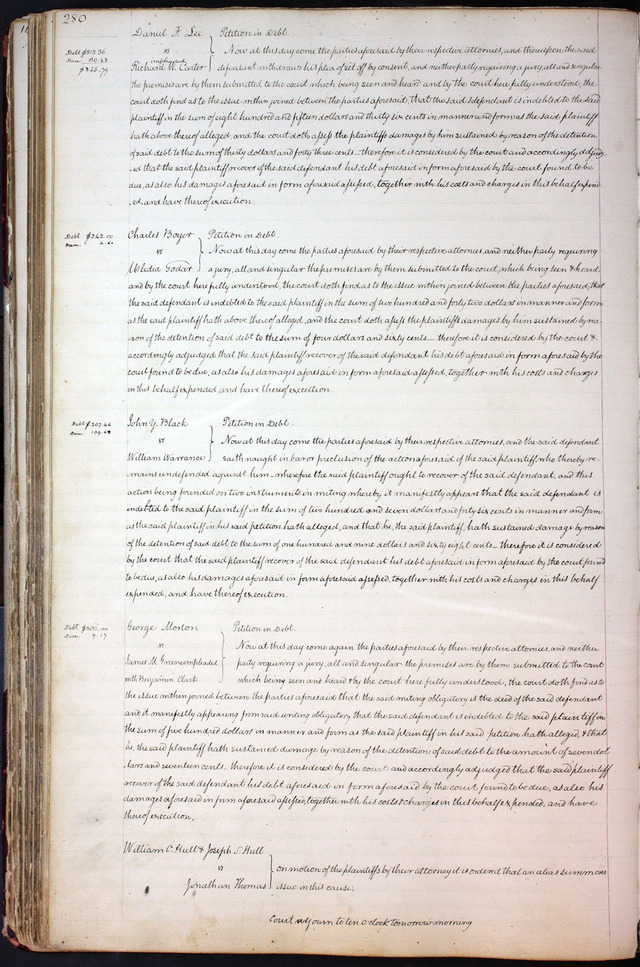 280
Daniel F. Lee } Petition in Debt.
Debt $815.36 vs Now at this day come the parties aforesaid by their respective attornies, and thereupon the said
Dam. 30.43 impleaded
$845.79 Richard M. Carter defendant withdraws his plea of set off by consent, and neither party requiring a jury, all and singular
the premises are by them submitted to the court which being seen and heard and by the court here fully understood, the
court doth find as to the issue within joined between the parties aforesaid, that the said defendant is indebted to the said
plaintiff in the sum of eight hundred and fifteen dollars and thirty six cents in manner and form as the said plaintiff
hath above thereof alleged and the court doth assess the plaintiffs damages by him sustained by reason of the detention
of said debt to the sum of thirty dollars and forty three cents – therefore it is considered by the court and accordingly adjudg
ed that the said plaintiff recover of the said defendant his debt aforesaid in form aforesaid by the court found to be
due, as also his damages aforesaid in form aforesaid assessed, together with his costs and charges in this behalf expend
ed, and have thereof execution.
Debt $242.00 Charles Boyer } Petition in Debt.
Dam. 4.60 vs Now at this day come the parties aforesaid by their respective attornies, and neither party requiring
Melidia Godar a jury, all and singular the premises are by them submitted to the court, which being seen & heard
and by the court here fully understood, the court doth find as to the issue within joined between the parties aforesaid, that
the said defendant is indebted to the said plaintiff in the sum of two hundred and forty two dollars in manner and form
as the said plaintiff hath above thereof alleged, and the court doth assess the plaintiffs damages by him sustained by rea
son of the detention of said debt to the sum of four dollars and sixty cents – therefore it is considered by the court &
accordingly adjudged that the said plaintiff recover of the said defendant his debt aforesaid in form aforesaid by the
court found to be due, as also his damages aforesaid in form aforesaid assessed, together with his costs and charges
in this behalf expended, and have thereof execution.
Debt $207.46 John Y. Black } Petition in Debt.
Dam. 109.68 vs Now at this day come the parties aforesaid by their respective attornies, and the said defendant
William Warrance saith naught in bar or preclusion of the action aforesaid of the said plaintiff, who thereby re
mains undefended against him – wherefore the said plaintiff ought to recover of the said defendant, and this
action being founded on two instruments in writing whereby it manifestly appears that the said defendant is
indebted to the said plaintiff in the sum of two hundred and seven dollars and forty six cents in manner and form
as the said plaintiff in his said petition hath alleged, and that he, the said plaintiff, hath sustained damage by reason
of the detention of said debt to the sum of one hundred and nine dollars and sixty eight cents – therefore it is considered
by the court that the said plaintiff recover of the said defendant his debt aforesaid in form aforesaid by the court found
to be due, as also his damages aforesaid in form aforesaid assessed, together with his costs and charges in this behalf
expended, and have thereof execution.
Debt $500.00 George Morton } Petition in Debt.
Dam. 7.17 vs Now at this day come again the parties aforesaid by their respective attornies, and neither
James M. Green impleaded party requiring a jury, all and singular the premises are by them submitted to the court
with Benjamin Clark which being seen and heard & by the court here fully understood, the court doth find as to
the issue within joined between the parties aforesaid that the said writing obligatory is the deed of the said defendant
and it manifestly appearing from said writing obligatory that the said defendant is indebted to the said plaintiff in
the sum of five hundred dollars in manner and form as the said plaintiff in his said petition hath alleged, & that
he, the said plaintiff hath sustained damage by reason of the detention of said debt to the amount of seven dol
lars and seventeen cents – therefore it is considered by the court and accordingly adjudged that the said plaintiff
recover of the said defendant his debt aforesaid in form aforesaid by the court found to be due, as also his
damages aforesaid in form aforesaid assessed, together with his costs & charges in this behalf expended, and have
thereof execution.
William C. Hull & Joseph S. Hull
vs } on motion of the plaintiffs by their attorney it is ordered that an alias summons
Jonathan Thomas issue in this cause.
Court adjourn to ten o'clock tomorrow morning